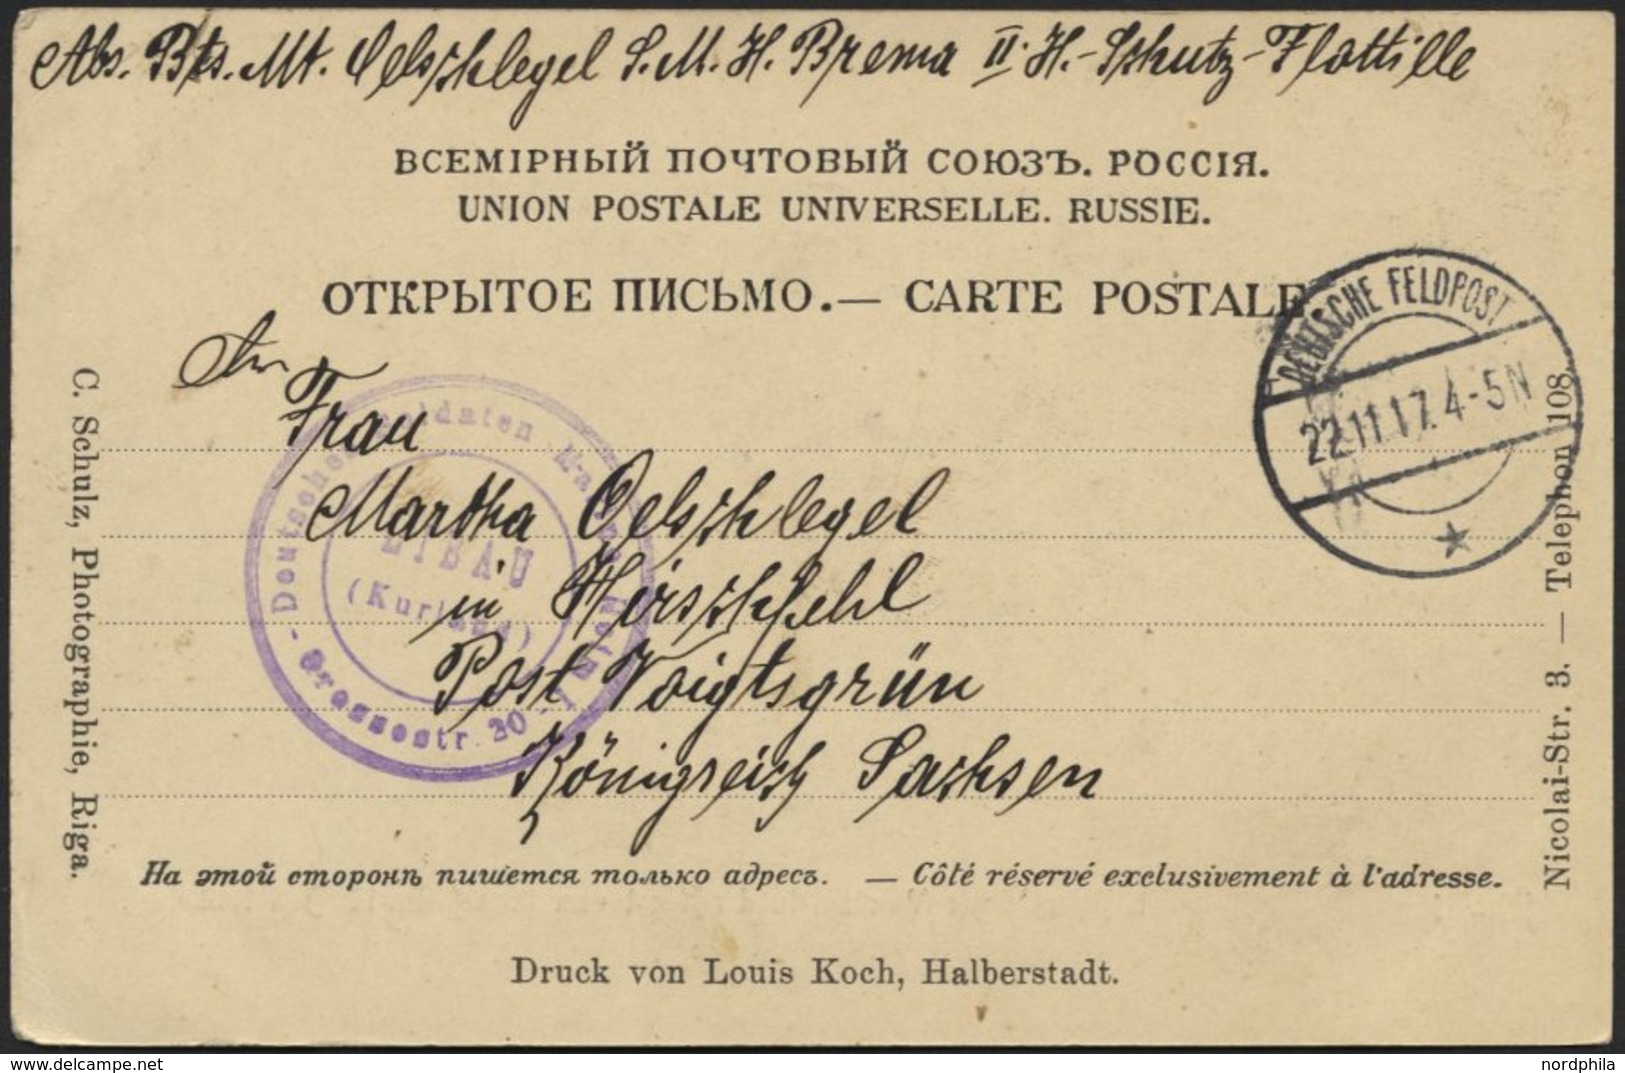 Abs. Bts. Mt. Oelschlegel S.M.H. Brema II. H.-Schutz-Flottille
ВСЕМІРНЫЙ ПОЧТОВЫЙ СОЮЗЪ. РОССІЯ.
UNION POSTALE UNIVERSELLE. RUSSIE.
ОТКРЫТОЕ ПИСЬМО.— CARTE POSTALE
DEUTSCHE FELDPOST
22.11.17. 4-5N
An
Frau
Martha Oelschlegel
in Hirschfeld
Post Voigtsgrün
Königreich Sachsen
Deutsches Soldaten
LIBAU
(Kurland)
Grossestr. 20
C. Schulz, Photographie, Riga.
Nicolai-Str. 3. — Telephon 108.
На этой сторонѣ пишется только адресъ. — Côté réservé exclusivement à l'adresse.
Druck von Louis Koch, Halberstadt.
www.delcampe.net
nordphila